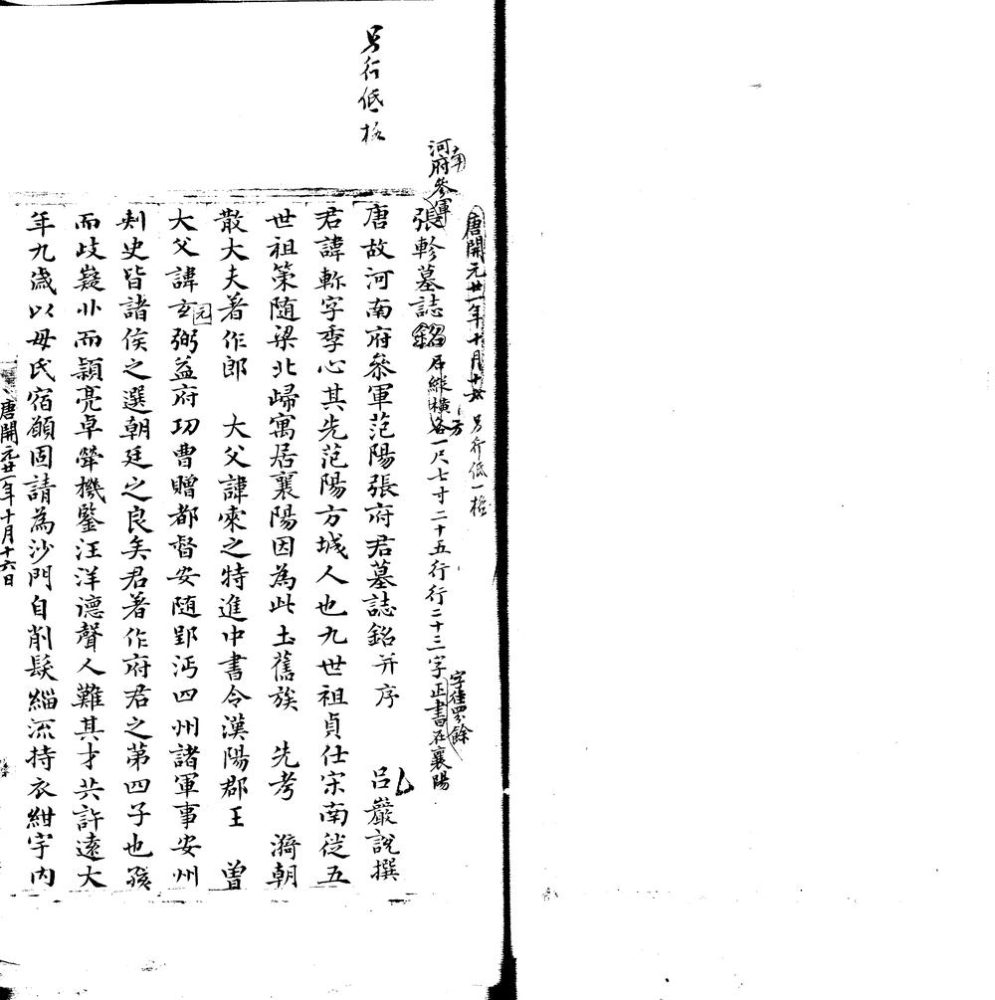 另行低格
唐開元廿一年十月十六
另行低一格
河南府參軍
張軫墓誌銘
石縱橫各一尺七寸二十五行行二十三字正書在襄陽
方
字徑四分餘
唐故河南府叅軍范陽張府君墓誌銘并序　　呂巖說撰
君諱軫字季心其先范陽方城人也九世祖貞仕宋南徙五
世祖策随梁北歸寓居襄陽因為此土舊族　先考　漪朝
散大夫著作郎　大父諱柬之特進中書令漢陽郡王　曾
大父諱玄弼益府功曹贈都督安随郢沔四州諸軍事安州
元
刺史皆諸侯之選朝廷之良矣君著作府君之第四子也孩
而歧嶷丱而穎亮卓犖機鑒汪洋德聲人難其才共許遠大
年九歲以母氏宿願固請為沙門自削髮緇流持衣紺宇內
唐開元廿一年十月十六日